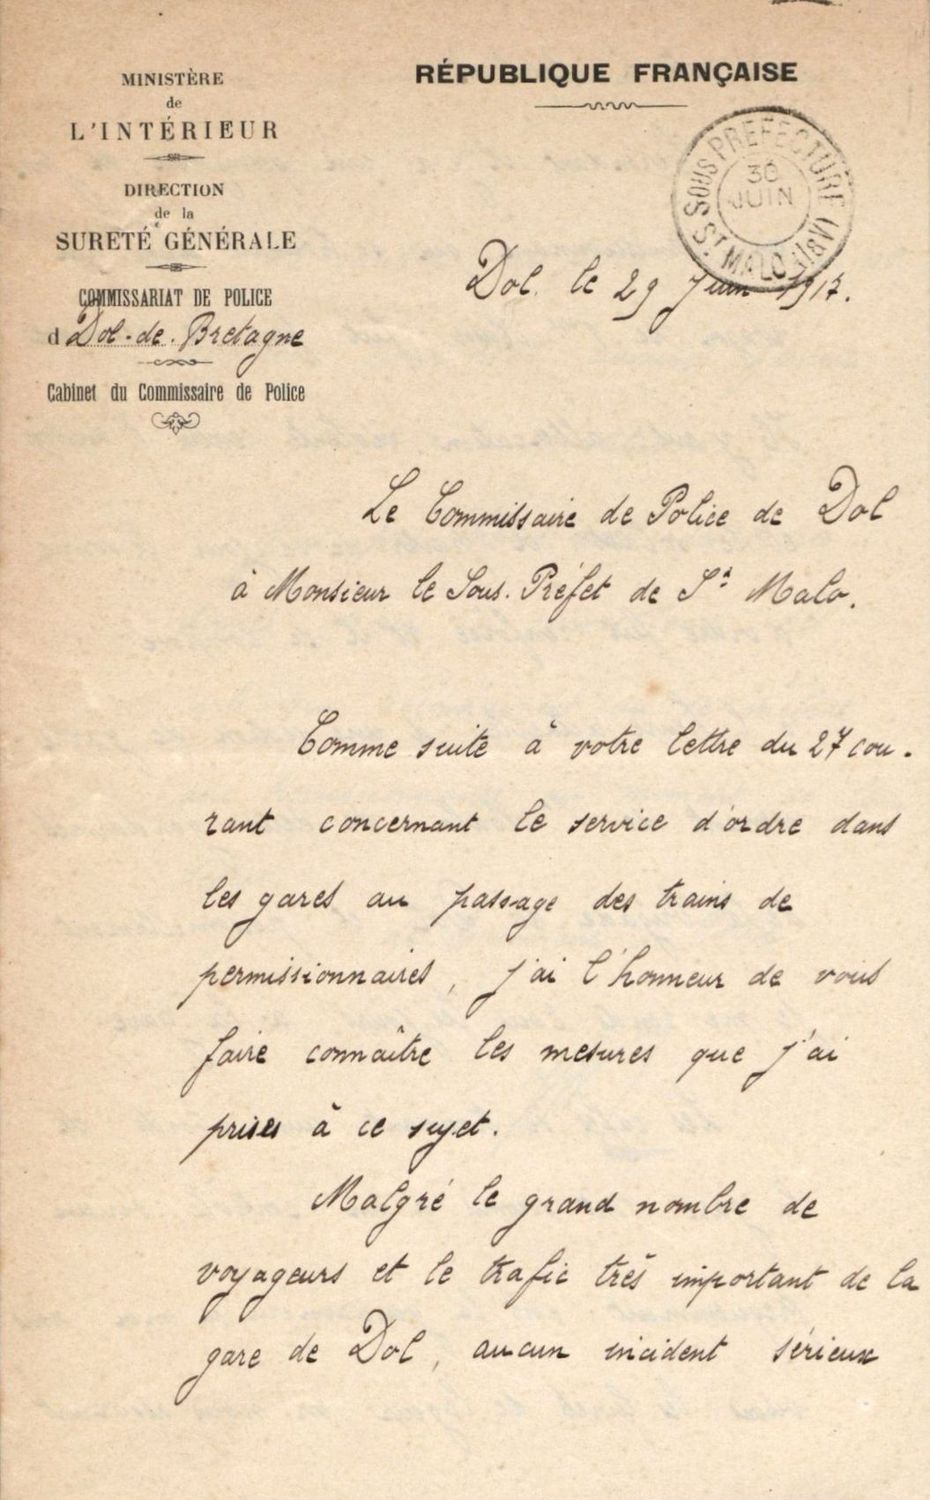 MINISTÈRE
de
L'INTÉRIEUR
DIRECTION
de la
SURETÉ GÉNÉRALE
COMMISSARIAT DE POLICE
d Dol-de-Bretagne
Cabinet du Commissaire de Police
RÉPUBLIQUE FRANÇAISE
SOUS PREFECTURE
30
JUIN
ST MALO (I&V)
Dol. le 29 Juin 1917.
Le Commissaire de Police de Dol
à Monsieur le Sous-Préfet de St Malo.
Comme suite à votre lettre du 27 cou-
rant concernant le service d'ordre dans
les gares au passage des trains de
permissionnaires, j'ai l'honneur de vous
faire connaître les mesures que j'ai
prises à ce sujet.
Malgré le grand nombre de
voyageurs et le trafic très important de la
gare de Dol, aucun incident sérieux